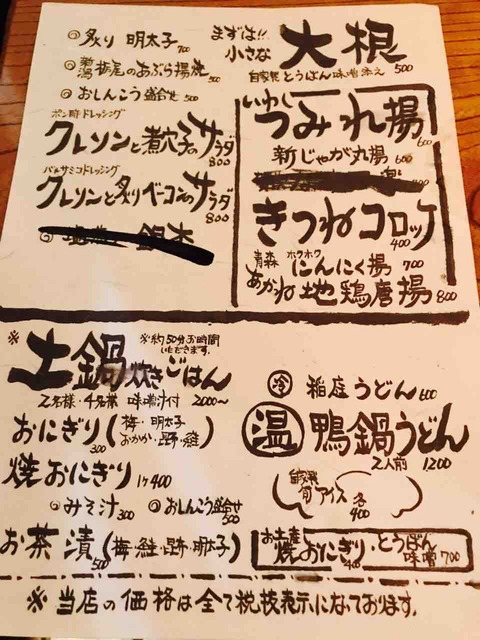 ◎炙り 明太子 700
◎新潟栃尾のあぶら揚焼 500
◎おしんこう盛合せ 500
ポン酢ドレッシング
クレソンと煮穴子のサラダ 800
バルサミコドレッシング
クレソンと炙りベーコンのサラダ 800
まずは!!
小さな 大根
自家製とうばん味噌添え 500
いわし
つみれ揚 600
新じゃが丸揚 600
きつねコロッケ 400
青森 ホクホク にんにく揚 700
あかね地鶏唐揚 800
※土鍋炊きごはん
※約50分お時間いただきます。
2名様・4名様 味噌汁付 2000〜
おにぎり(梅・明太子 おかか・鮭) 300
焼おにぎり 1ケ400
◎みそ汁 300 ◎おしんこう盛合せ 500
お茶漬(梅・鮭・明太子) 500
冷 稲庭うどん 600
温 鴨鍋うどん
2人前 1200
自家製 旬アイス 各400
お土産 焼おにぎり 400・とうばん味噌 700
※当店の価格は全て税抜表示になっております。